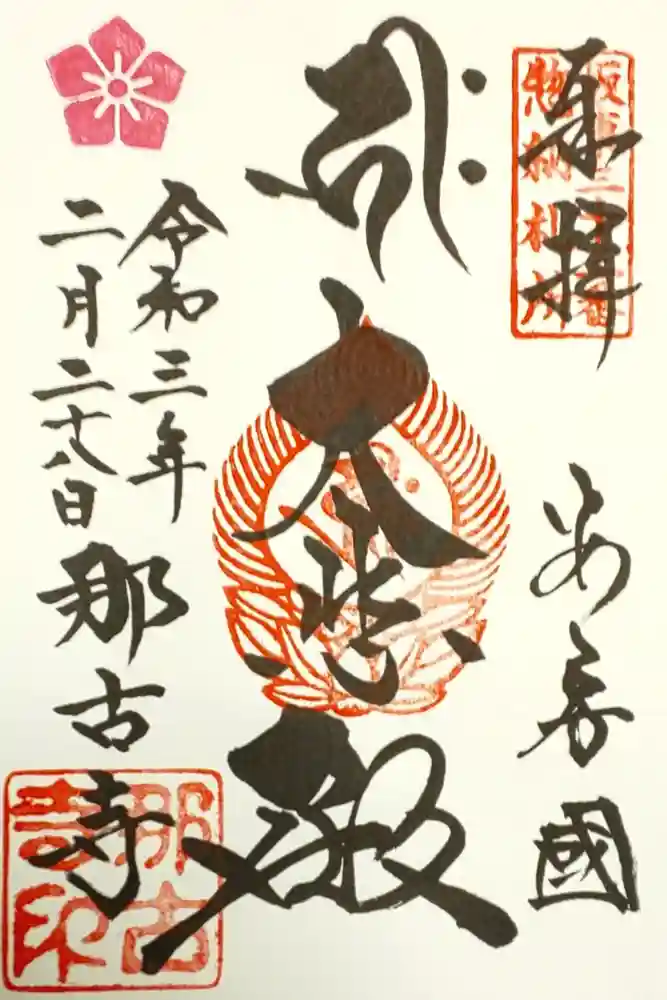 奉拝
坂東三十三番
惣納札所
安房國
大悲殿
令和三年
二月二十八日
那古寺
那古
寺印